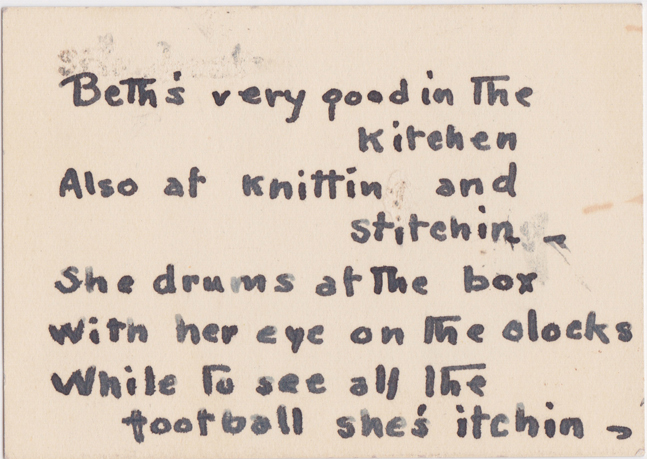 Beth's very good in the
kitchen
Also at knittin and
stitchin -
She drums at the box
with her eye on the clocks
While to see all the
football she's itchin -